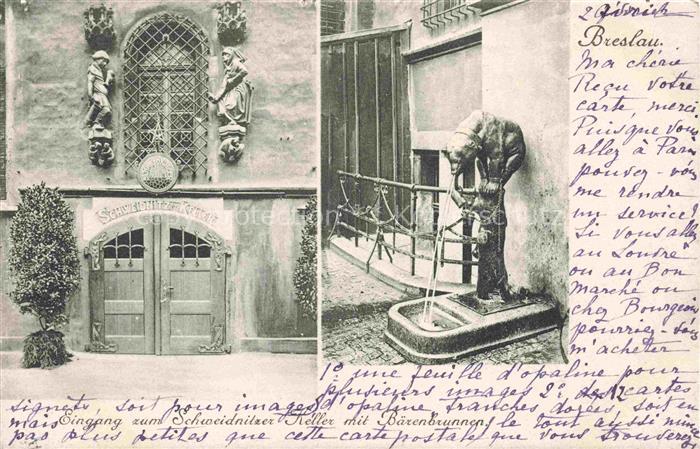 Breslau.
Ma chérie
Reçu votre
carte, merci.
Puisque vous
allez à Paris
pouvez-vous
me rendre
un service?
Si vous allez
au Louvre
ou au Bon
Marché ou
chez Bourgeois
pourriez-vous
m'acheter
SCHWEIDNITZER KELLER
1° une feuille d'opaline pour
plusieurs images 2° des cartes
signets, soit pour images d'opaline tranches dorées, soit en
Eingang zum Schweidnitzer Keller mit Bärenbrunnen.
mais le tout aussi mince
pas plus petites que cette carte postale que vous trouverez